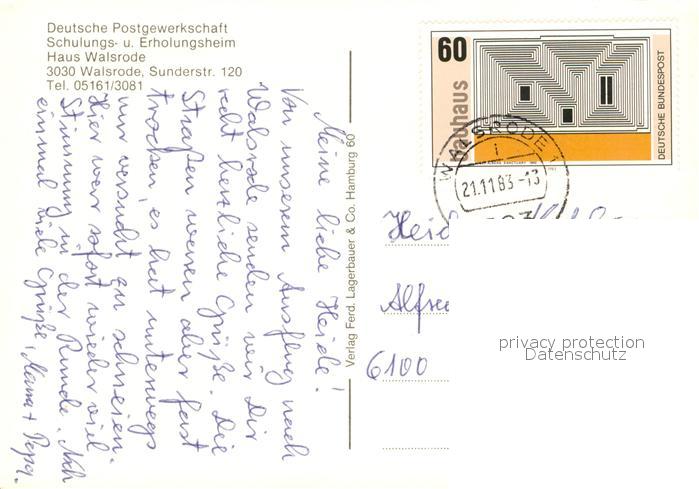 Deutsche Postgewerkschaft
Schulungs- u. Erholungsheim
Haus Walsrode
3030 Walsrode, Sunderstr. 120
Tel. 05161/3081
Meine liebe Heide!
Von unserem Ausflug nach
Walsrode senden wir Dir
recht herzliche Grüße. Die
Straßen waren aber fast
trocken, es hat unterwegs
nur versucht zu schneien.
Hier war sofort wieder viel
Stimmung in der Runde. Noch
einmal viele Grüße, Mama + Papa.
Verlag Ferd. Lagerbauer & Co. Hamburg 60
60
bauhaus
DEUTSCHE BUNDESPOST
WALSRODE 1
i
21.11.83-13
Heid
Alfre
6100
privacy protection
Datenschutz